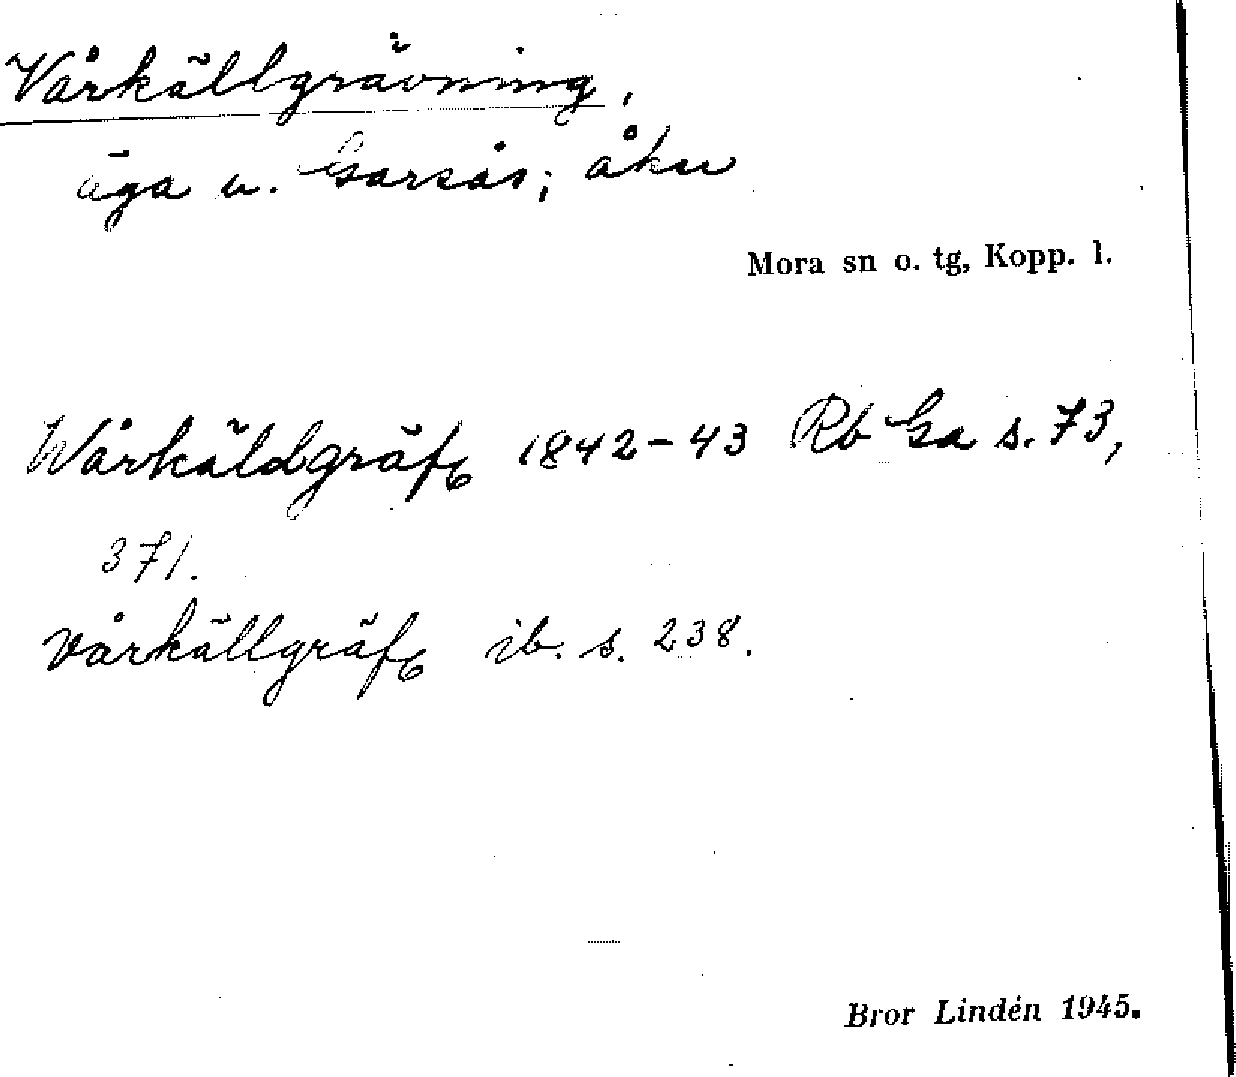 Vårkällgrävning,
äga u. Garsås; åker
Mora sn o. tg, Kopp. l.
Wårkäldgräfg 1842-43 Rb Ga s. 73,
371.
Vårkällgräfg ib. s. 238.
Bror Lindén 1945.